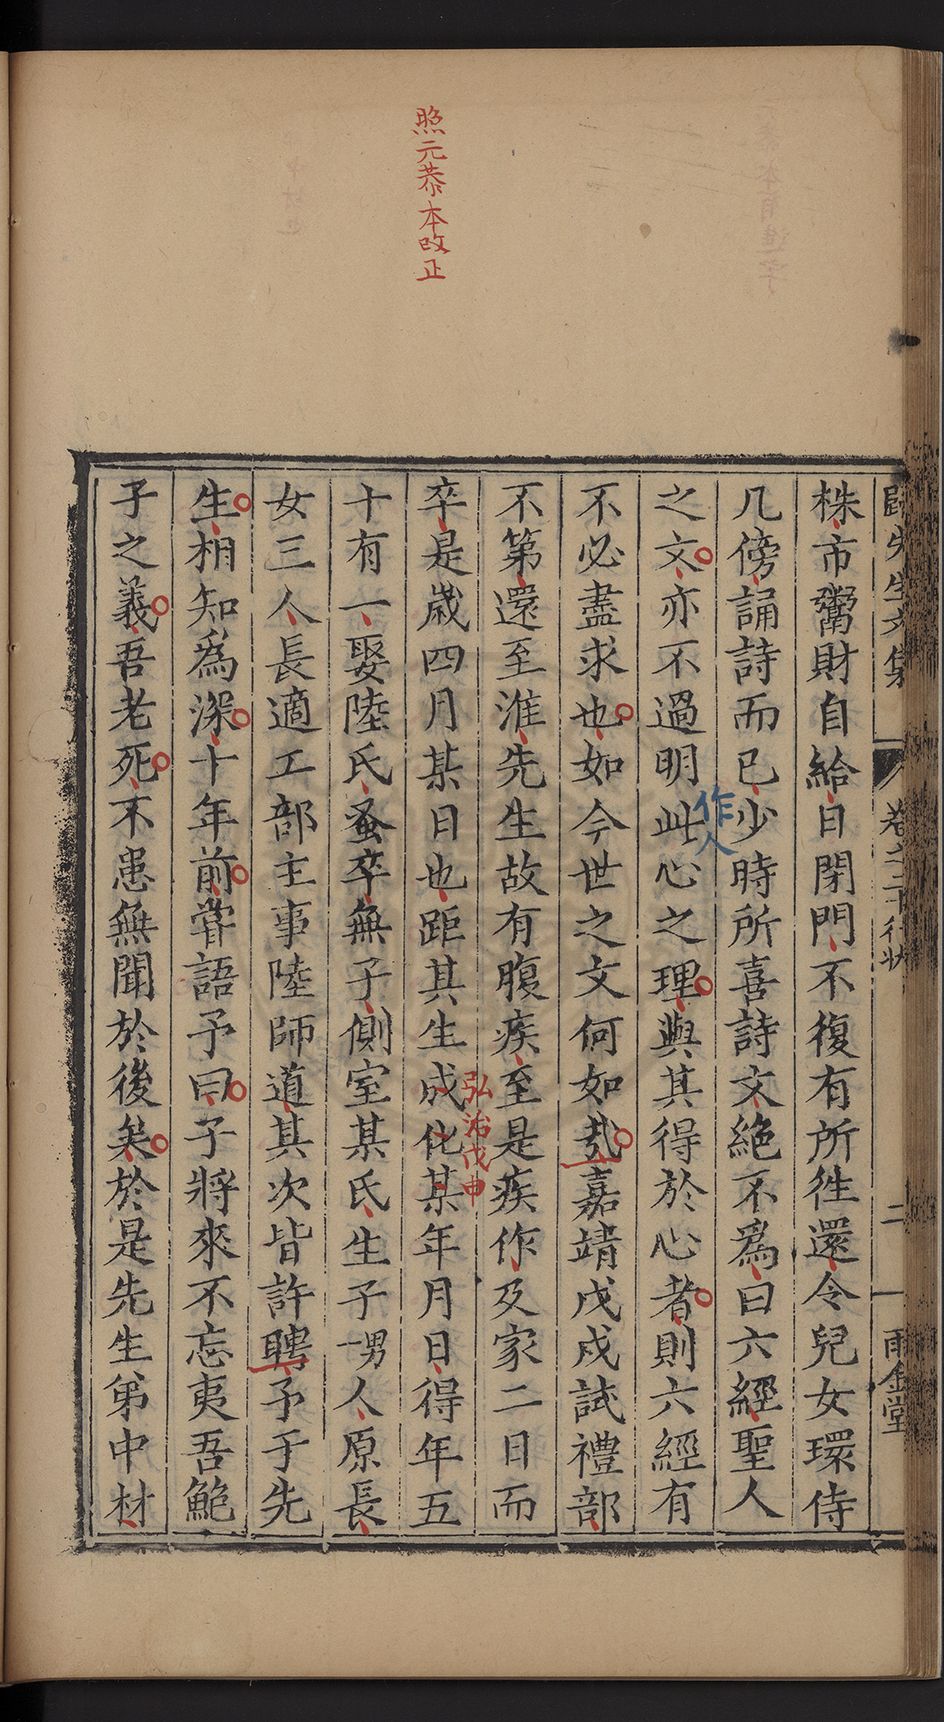 照元恭本改正
歸先生文集
卷之二十行狀
二
雨金堂
株市鬻財自給日閉門不復有所徃還令兒女環侍
几傍誦詩而已少時所喜詩文絶不爲曰六經聖人
作人
之文亦不過明此心之理與其得於心者則六經有
不必盡求也如今世之文何如哉嘉靖戊戌試禮部
不第還至淮先生故有腹疾至是疾作及家二日而
卒是歲四月某日也距其生成化某年月日得年五
弘治戊申
十有一娶陸氏蚤卒無子側室某氏生子男一人原長
女三人長適工部主事陸師道其次皆許聘予于先
生相知爲深十年前甞語予曰子將來不忘夷吾鮑
子之義吾老死不患無聞於後矣於是先生弟中材